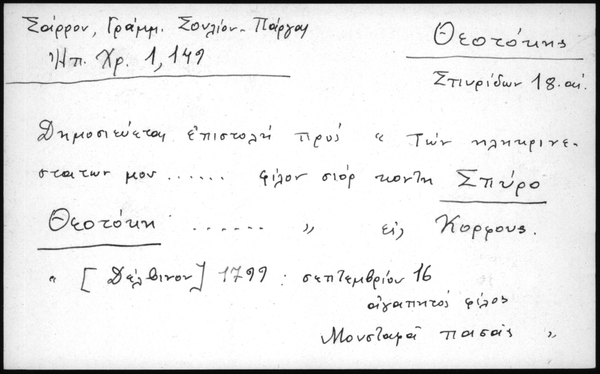 Σάρρου, Γράμμ. Σουλίου - Πάργας
Ἠπ. Χρ. 1, 149
Θεοτόκης
Σπυρίδων 18. αἰ.
Δημοσιεύεται ἐπιστολή πρός " Τόν ηληκρινέ-
στατων μου ...... φίλον σιόρ κοντη Σπύρο
Θεοτόκη ...... " εἰς Κορφους.
" [Δέλβινον] 1799 : σεπτεμβρίου 16
αγαπητός φίλος
Μουσταφᾶ πασάς "